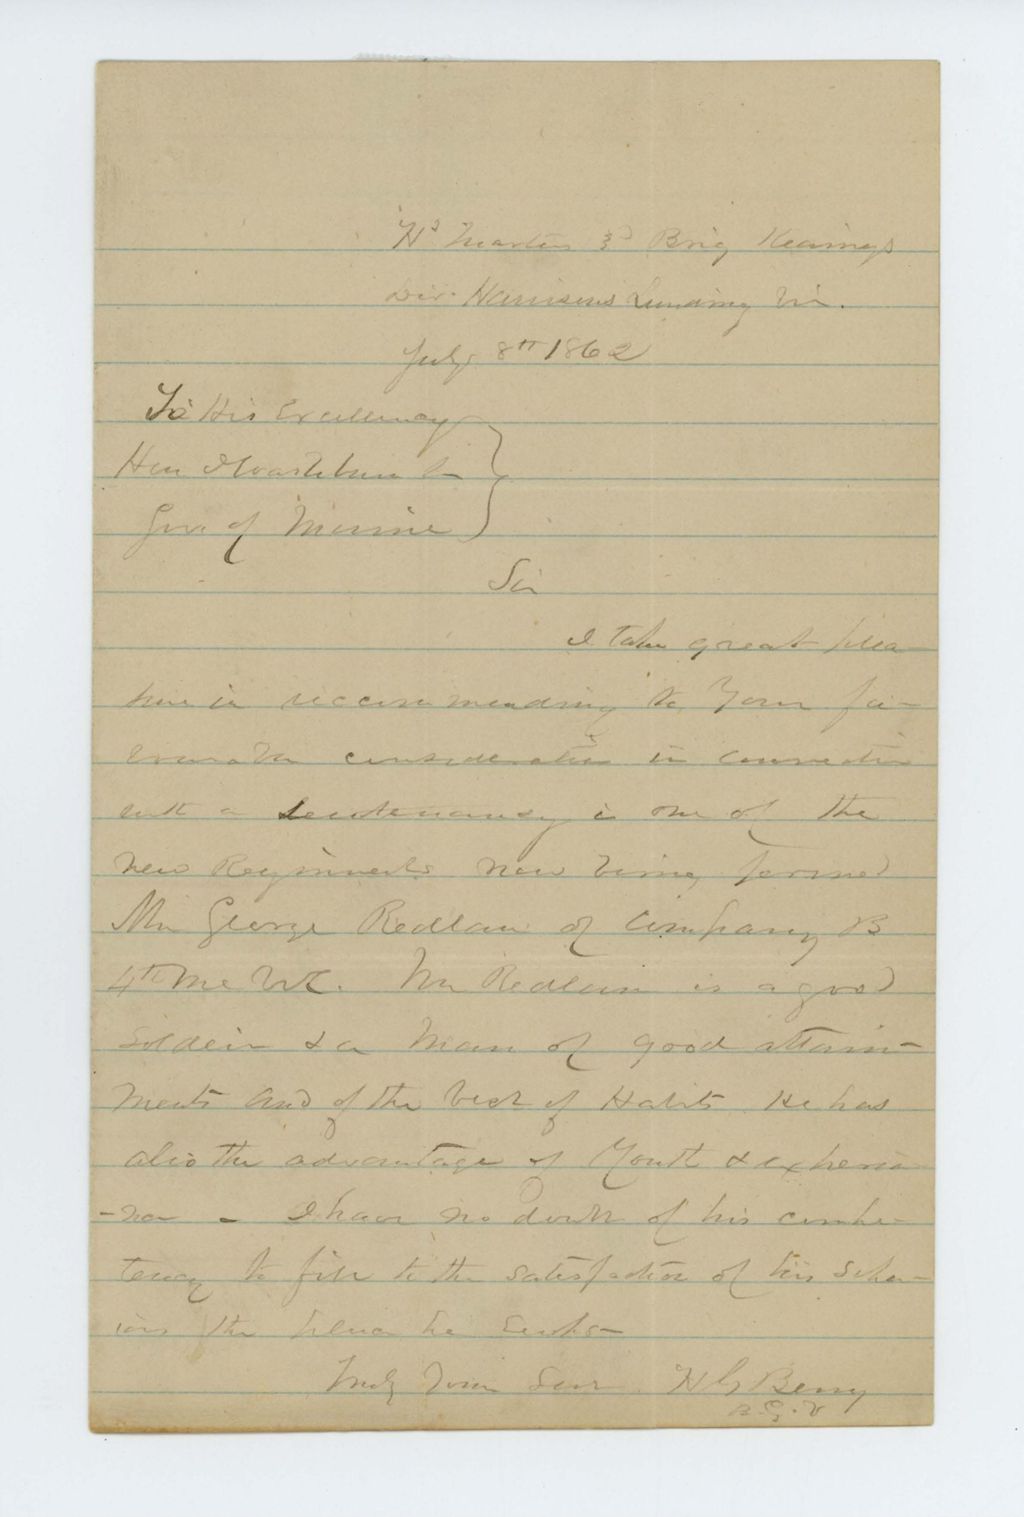 Hd Quarters 3d Brig Kearneys
Div. Harrisons Landing Va.
July 8th 1862
To His Excellency
Hon I Washburn Jr
Gov. of Maine
Sir
I take great plea-
sure in reccommending to Your fa-
vourable consideration in connection
with a Leutenancy in one of the
new Regiments now being formed
Mr George Redlon of Company B
4th Me Vol. Mr Redlon is a good
Soldeir & a Man of good attain-
ments and of the best of Habits He has
also the advantage of Youth & experie
-nce - I have no doubt of his compe-
tency to fill to the satisfaction of his Supe-
iors the place he seeks-
Truly Your Serv H G Berry
B.G.V